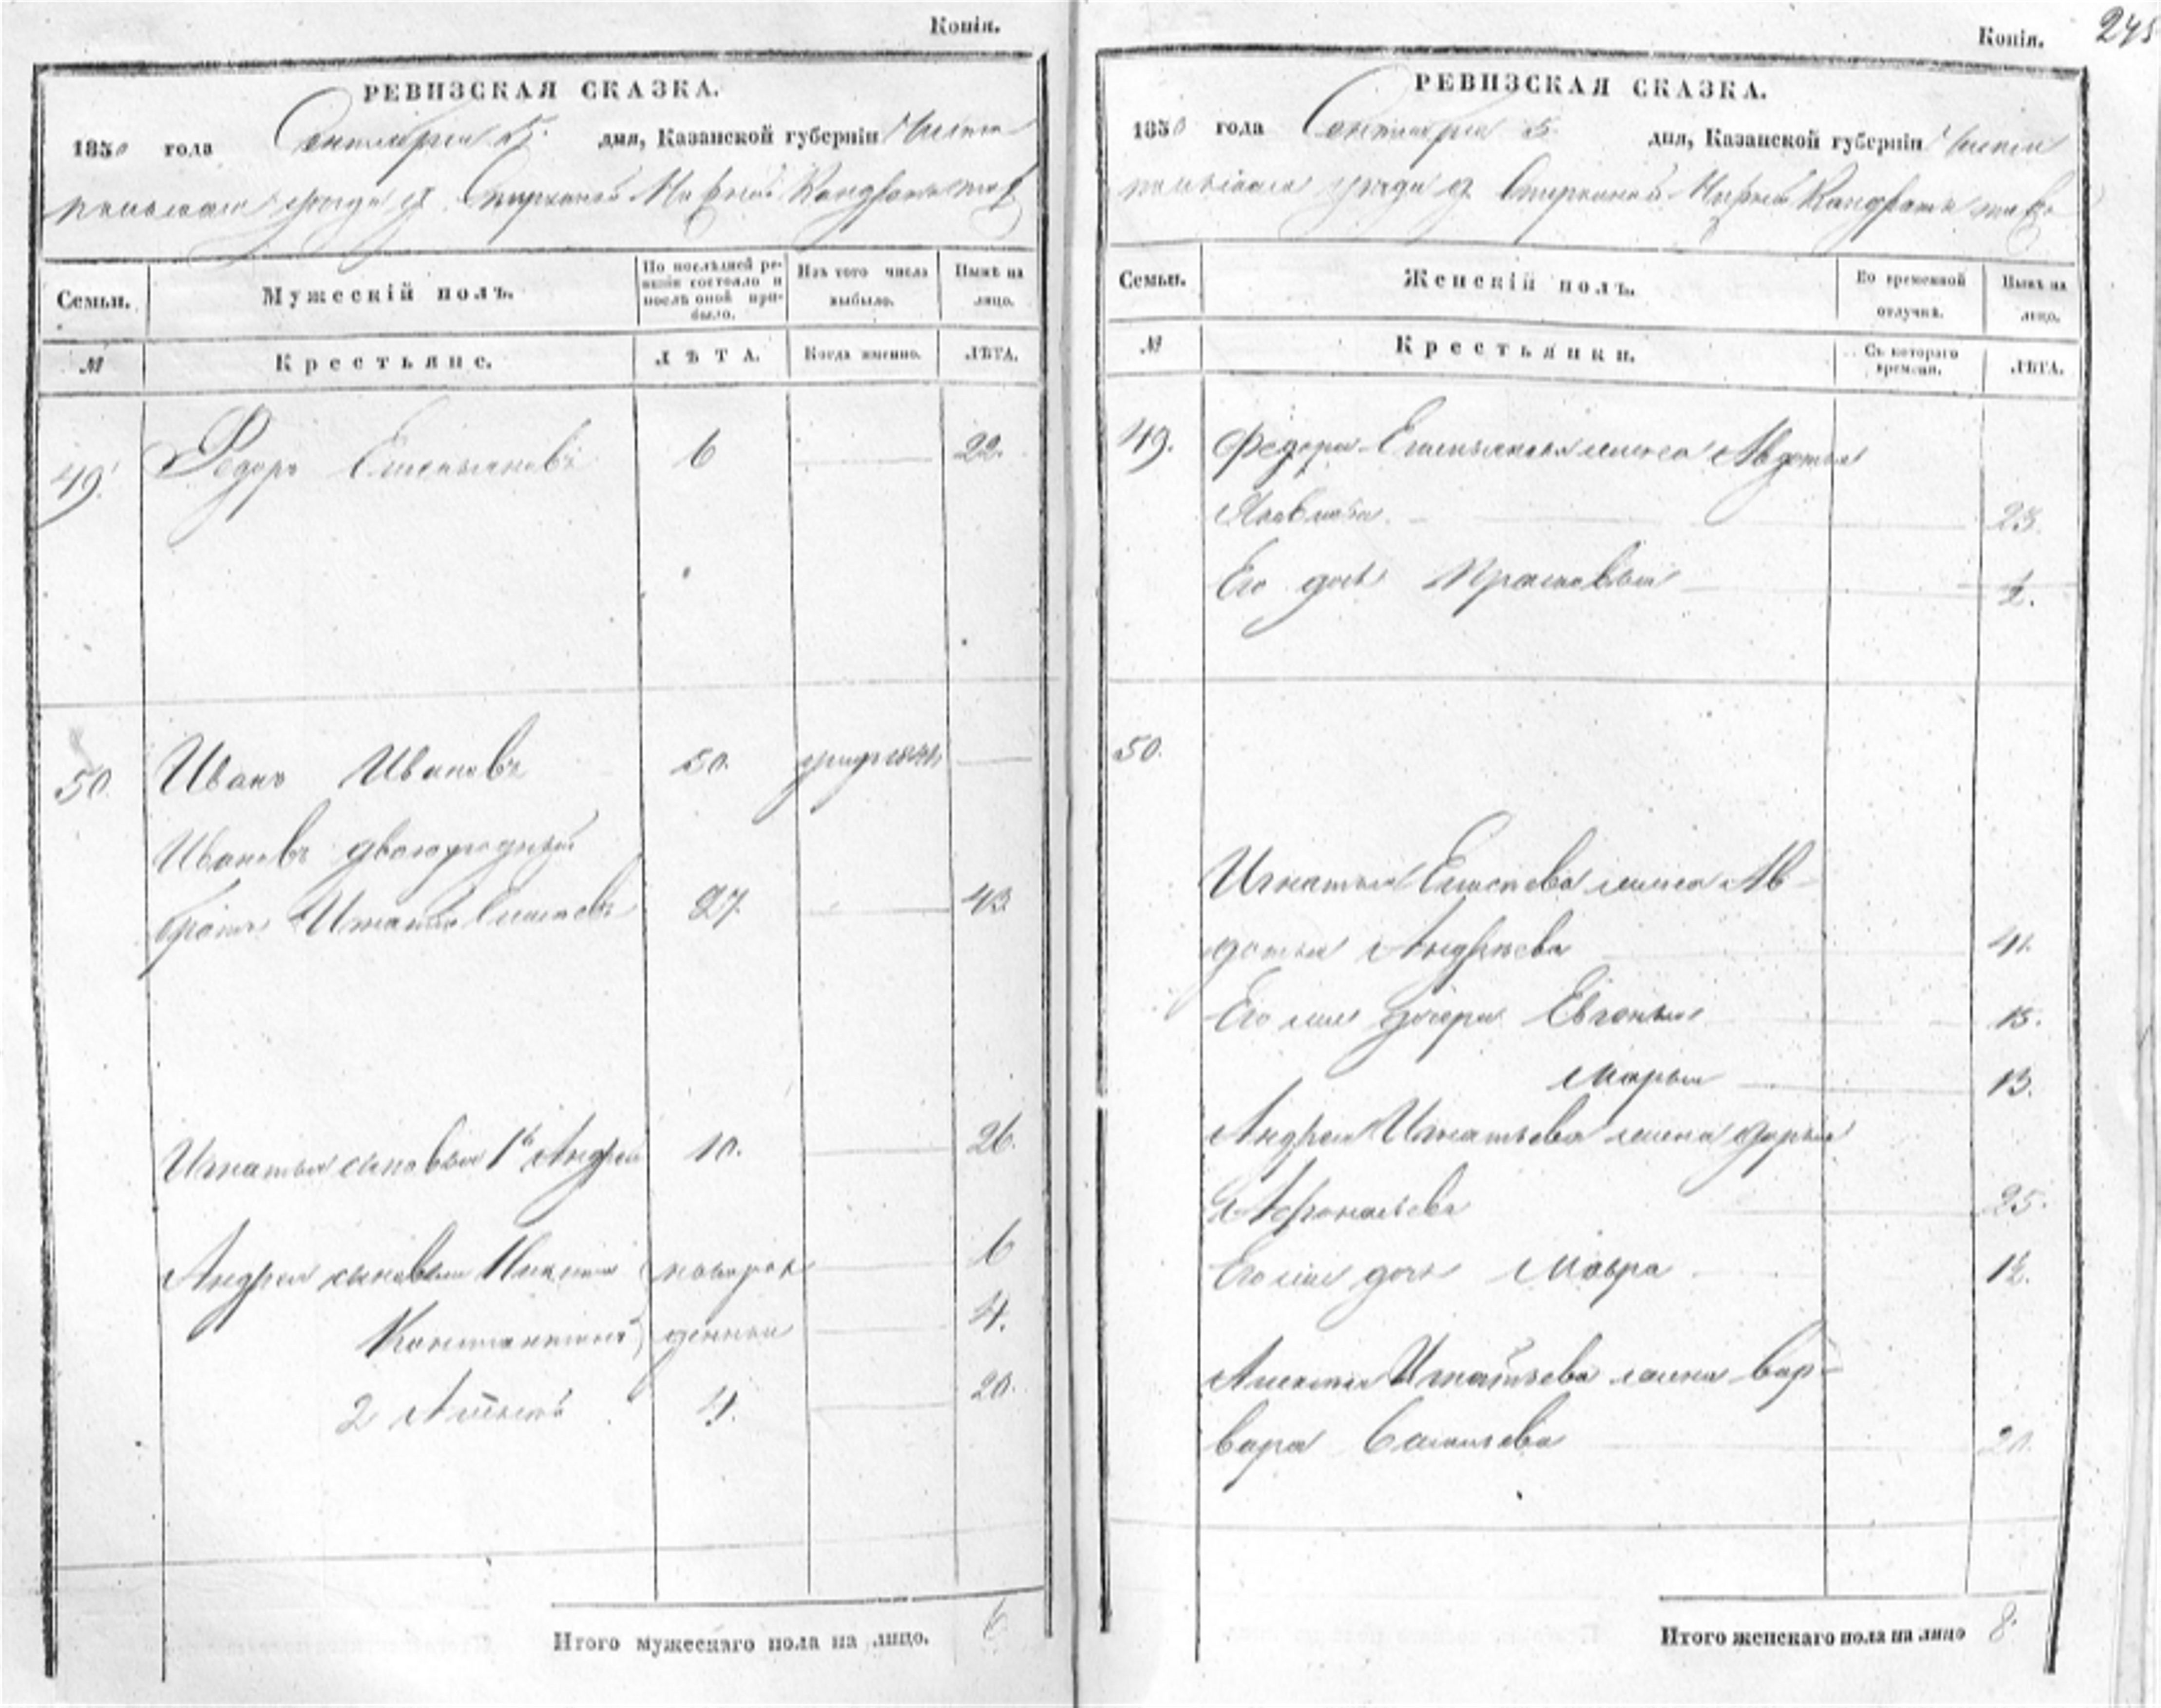 Копія.
РЕВИЗСКАЯ СКАЗКА.
1850 года Сентября 5. дня, Казанской губерніи Чисто
польскаго уѣзда д.
Семьи. Мужескій полъ. По послѣдней ре-визіи состояло и послѣ оной при-было. Изъ того числа выбыло. Нынѣ на лицо.
№ Крестьяне. ЛѢТА. Когда именно. ЛѢТА.
49. Федоръ Емельяновъ 6 22.
50 Иванъ Ивановъ 50. умер 1841
Ивановъ двоюродный
братъ Игнатій 27. 43
Игнатья сыновья 1й Андрей 10. 26.
Андрея сыновья Никита новорож 6
Константинъ денные 4.
2 4. 20.
Итого мужескаго пола на лицо. 6
Копія. 245
РЕВИЗСКАЯ СКАЗКА.
1850 года Сентября 5. дня, Казанской губерніи Чисто
польскаго уѣзда д.
Семьи. Женскій полъ. Во временной отлучкѣ. Нынѣ на лицо.
№ Крестьянки. Съ котораго времени. ЛѢТА.
49. Федора Емельянова жена Авдотья
Яковлева 23.
Его дочь Прасковья
50.
Игнатья жена Ав-
дотья Андреева 41.
Его же дочери Евгенья 15.
Марья 13.
Андрея Игнатьева жена Дарья
25.
Его же дочь Мавра
Игнатьева жена Вар-
вара 20.
Итого женскаго пола на лицо 8.